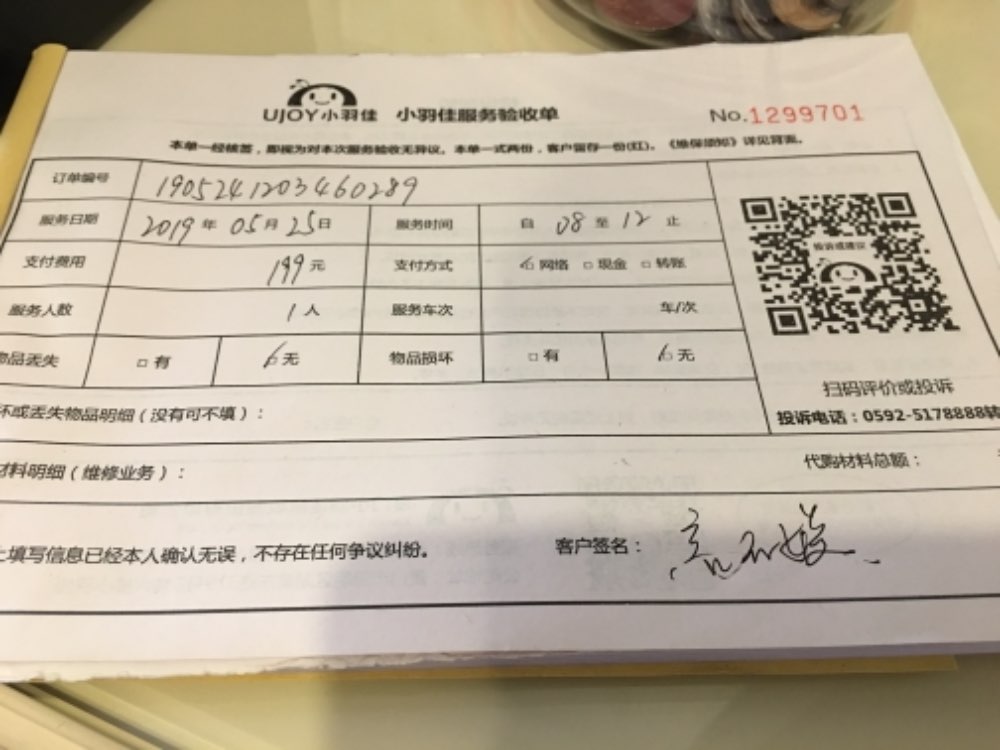 UJOY小羽佳 小羽佳服务验收单 No.1299701
本单一经核签，即视为对本次服务验收无异议。本单一式两份，客户留存一份(红)。《维保须知》详见背面。
订单编号 1905241203460289
服务日期 2019年05月25日 服务时间 自08至12止
支付费用 199元 支付方式 网络 □现金 □转账
服务人数 1人 服务车次 年/次
物品丢失 □有 无 物品损坏 □有 无
投诉或建议
扫码评价或投诉
投诉电话：0592-5178888转
坏或丢失物品明细（没有可不填）：
材料明细（维修业务）： 代购材料总额：
上填写信息已经本人确认无误，不存在任何争议纠纷。 客户签名：